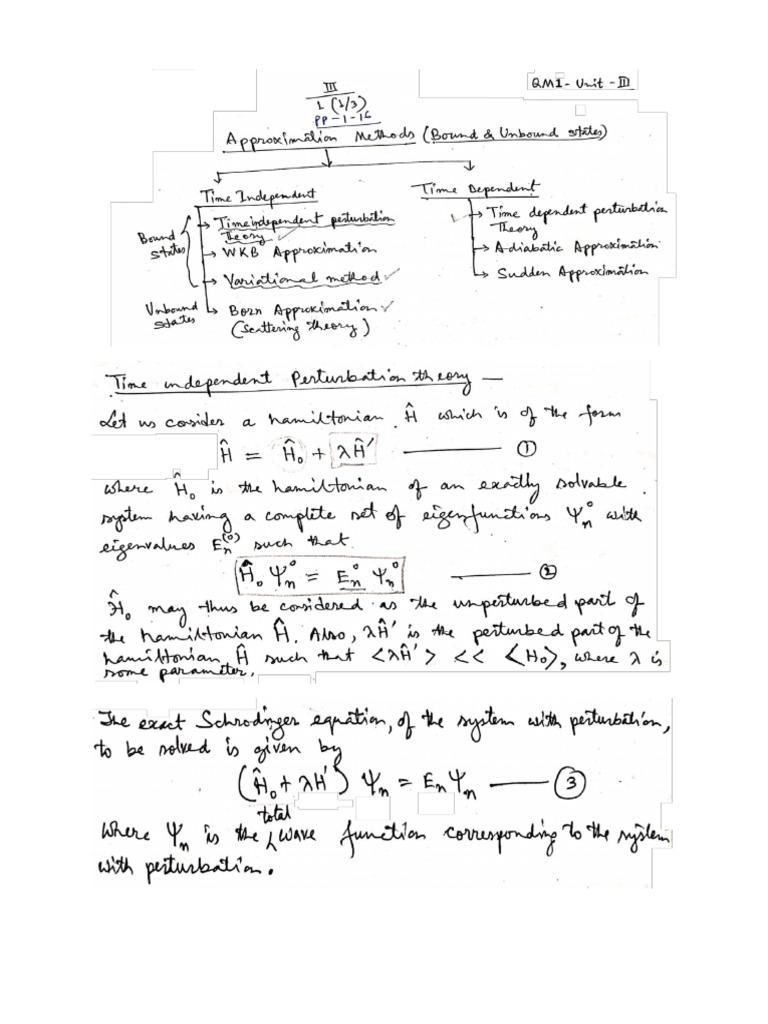 QM1 - Unit - III
III
L (1/3)
PP-1-16
Approximation Methods (Bound & Unbound states)
Time Independent
Time Dependent
Bound states
Time independent perturbation
Theory
WKB Approximation
Variational method
Unbound states
Born Approximation
(Scattering theory)
Time dependent perturbation
Theory
A-diabatic Approximation
Sudden Approximation
Time independent Perturbation theory —
Let us cosider a hamiltonian Ĥ which is of the form
Ĥ = Ĥ₀ + λĤ′ ——— ①
where Ĥ₀ is the hamiltonian of an exactly solvable
system having a complete set of eigenfunctions Ψₙ⁰ with
eigenvalues Eₙ⁽⁰⁾ such that
Ĥ₀ Ψₙ⁰ = Eₙ⁰ Ψₙ⁰ ——— ②
Ĥ₀ may thus be considered as the unperturbed part of
the hamiltonian Ĥ. Also, λĤ′ is the perturbed part of the
hamiltonian Ĥ such that <λĤ′> << <H₀>, where λ is
some parameter.
The exact Schrodinger equation, of the system with perturbation,
to be solved is given by
(Ĥ₀ + λH′) Ψₙ = Eₙ Ψₙ ——— ③
where Ψₙ is the total wave function corresponding to the system
with perturbation.